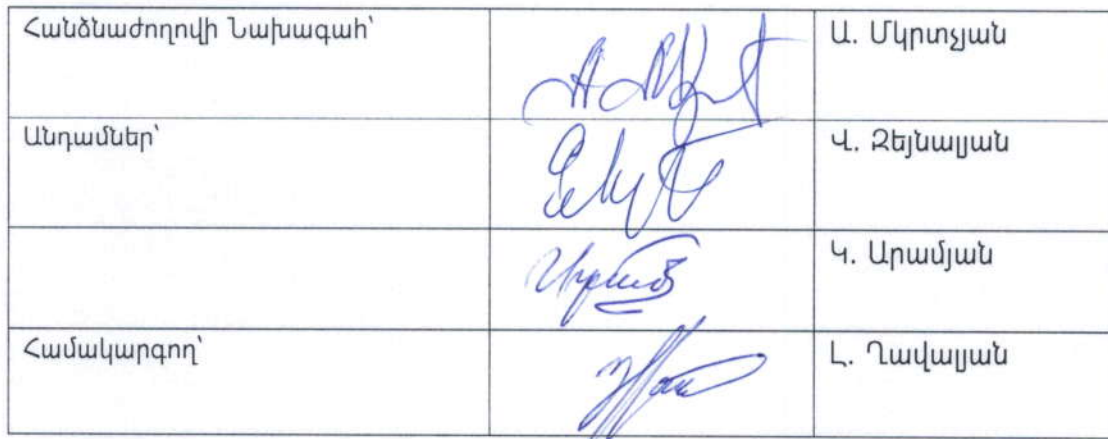 Հանձնաժողովի Նախագահ՝
Ա. Մկրտչյան
Անդամներ՝
Վ. Զեյնալյան
Կ. Արամյան
Համակարգող՝
Լ. Ղավալյան